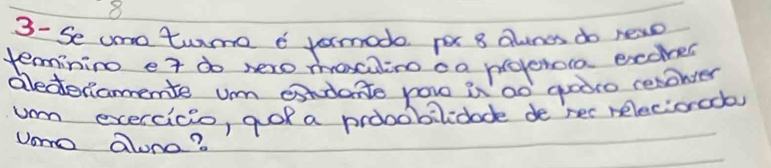 8
3- Se uma turma é formada por 8 alunos do sexo
feminino e 7 do sexo masculino e a professora escolher
aleatoriamente um estudante para ir ao quadro resolver
um exercício, qual a probabilidade de ser selecionada
uma aluna?